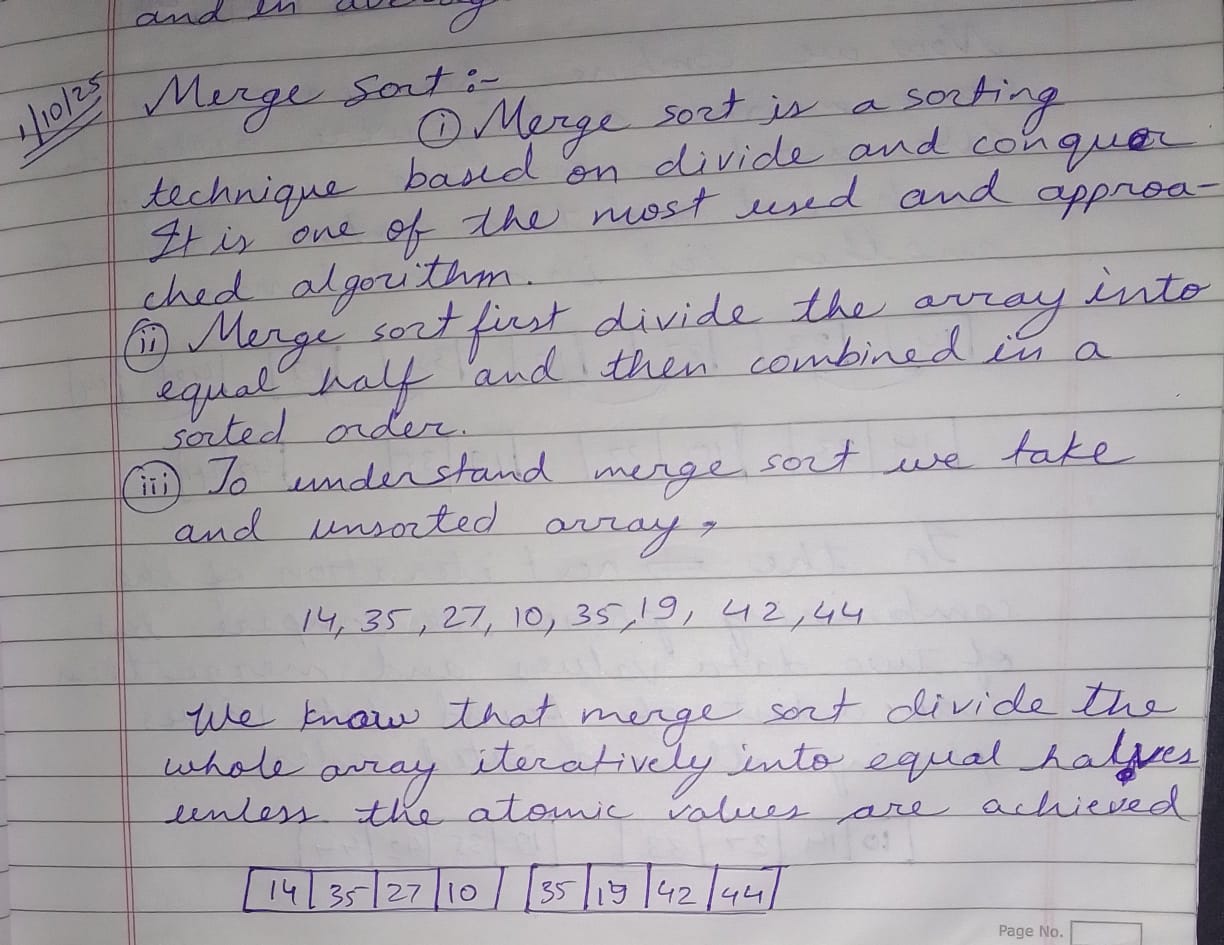 and in
1/10/25
Merge Sort :-
(i) Merge sort is a sorting
technique based on divide and conquer
It is one of the most used and approa-
ched algorithm.
(ii) Merge sort first divide the array into
equal half and then combined in a
sorted order.
(iii) To understand merge sort we take
and unsorted array,
14, 35, 27, 10, 35, 19, 42, 44
We know that merge sort divide the
whole array iteratively into equal halves
unless the atomic values are achieved
14 35 27 10 35 19 42 44
Page No.